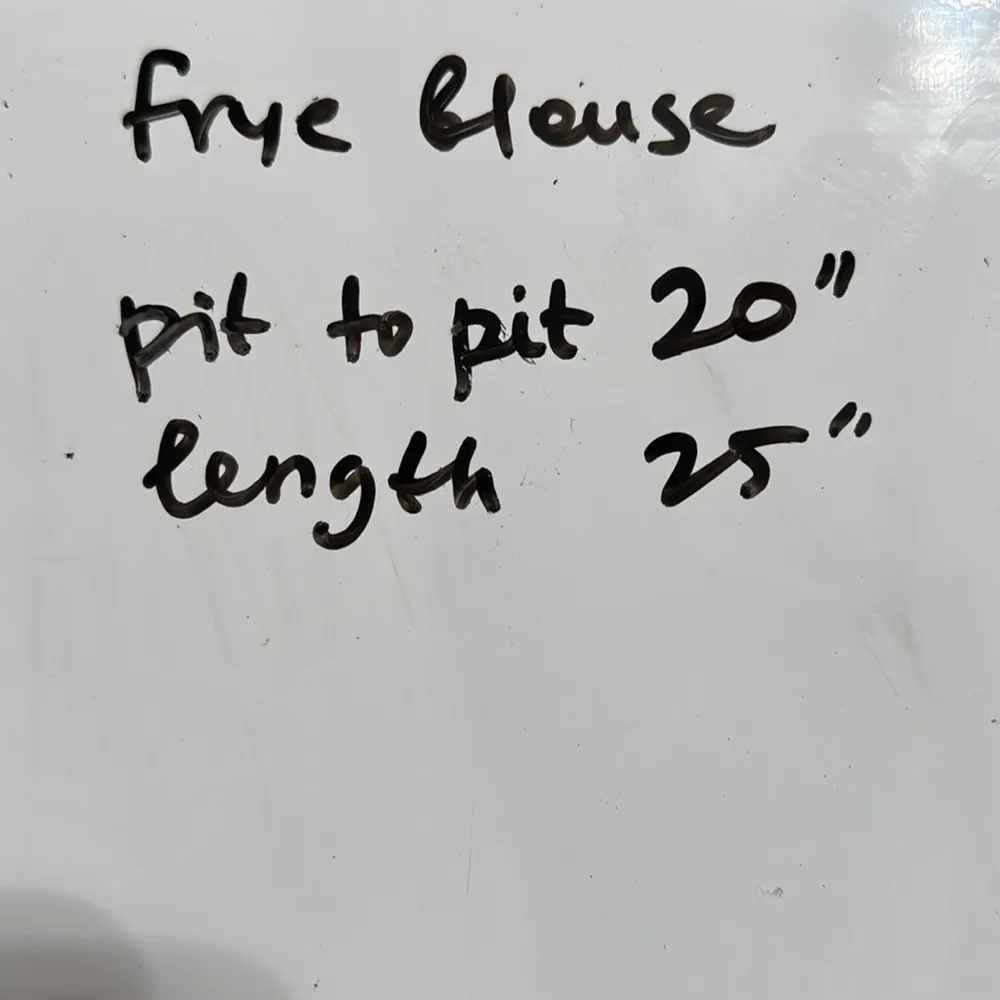 frye blouse
pit to pit 20"
length 25"